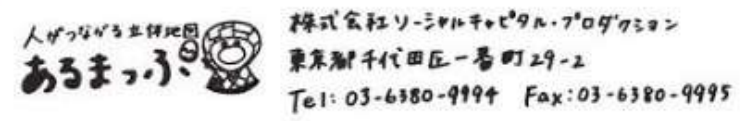 人がつながる立体地図
あるまっぷ
株式会社ソーシャルキャピタル・プロダクション
東京都千代田区一番町29-2
Tel: 03-6380-9994 Fax:03-6380-9995